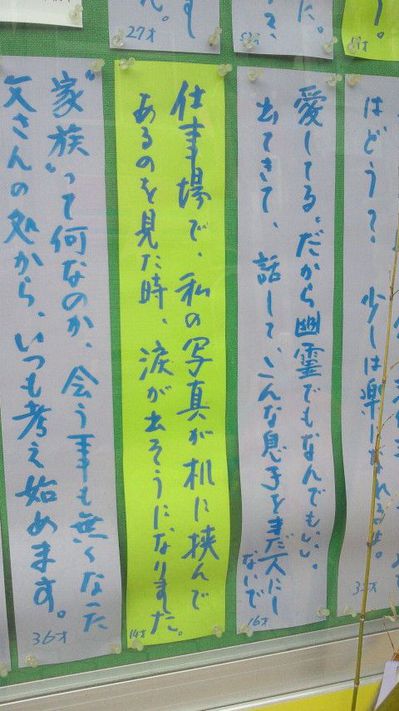 はどう?、少しは楽になれるよ。
愛してる。だから幽霊でもなんでもいい。
出てきて、話して、こんな息子をまだ一人にし
ないで
16才
仕事場で、私の写真が机に挟んで
あるのを見た時、涙が出そうになりました。
14才
"家族"って何なのか、会う事も無くなった
父さんの処から、いつも考え始めます。
36才
27才